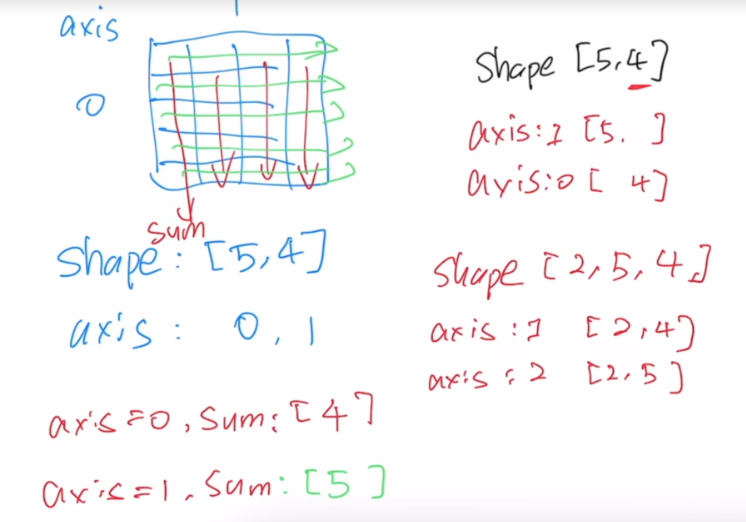 1
axis
0
sum
shape: [5,4]
axis: 0, 1
axis=0, sum: [4]
axis=1, sum: [5]
shape [5,4]
axis:1 [5. ]
axis:0 [ 4]
shape [2,5,4]
axis:1 [2,4]
axis:2 [2,5]